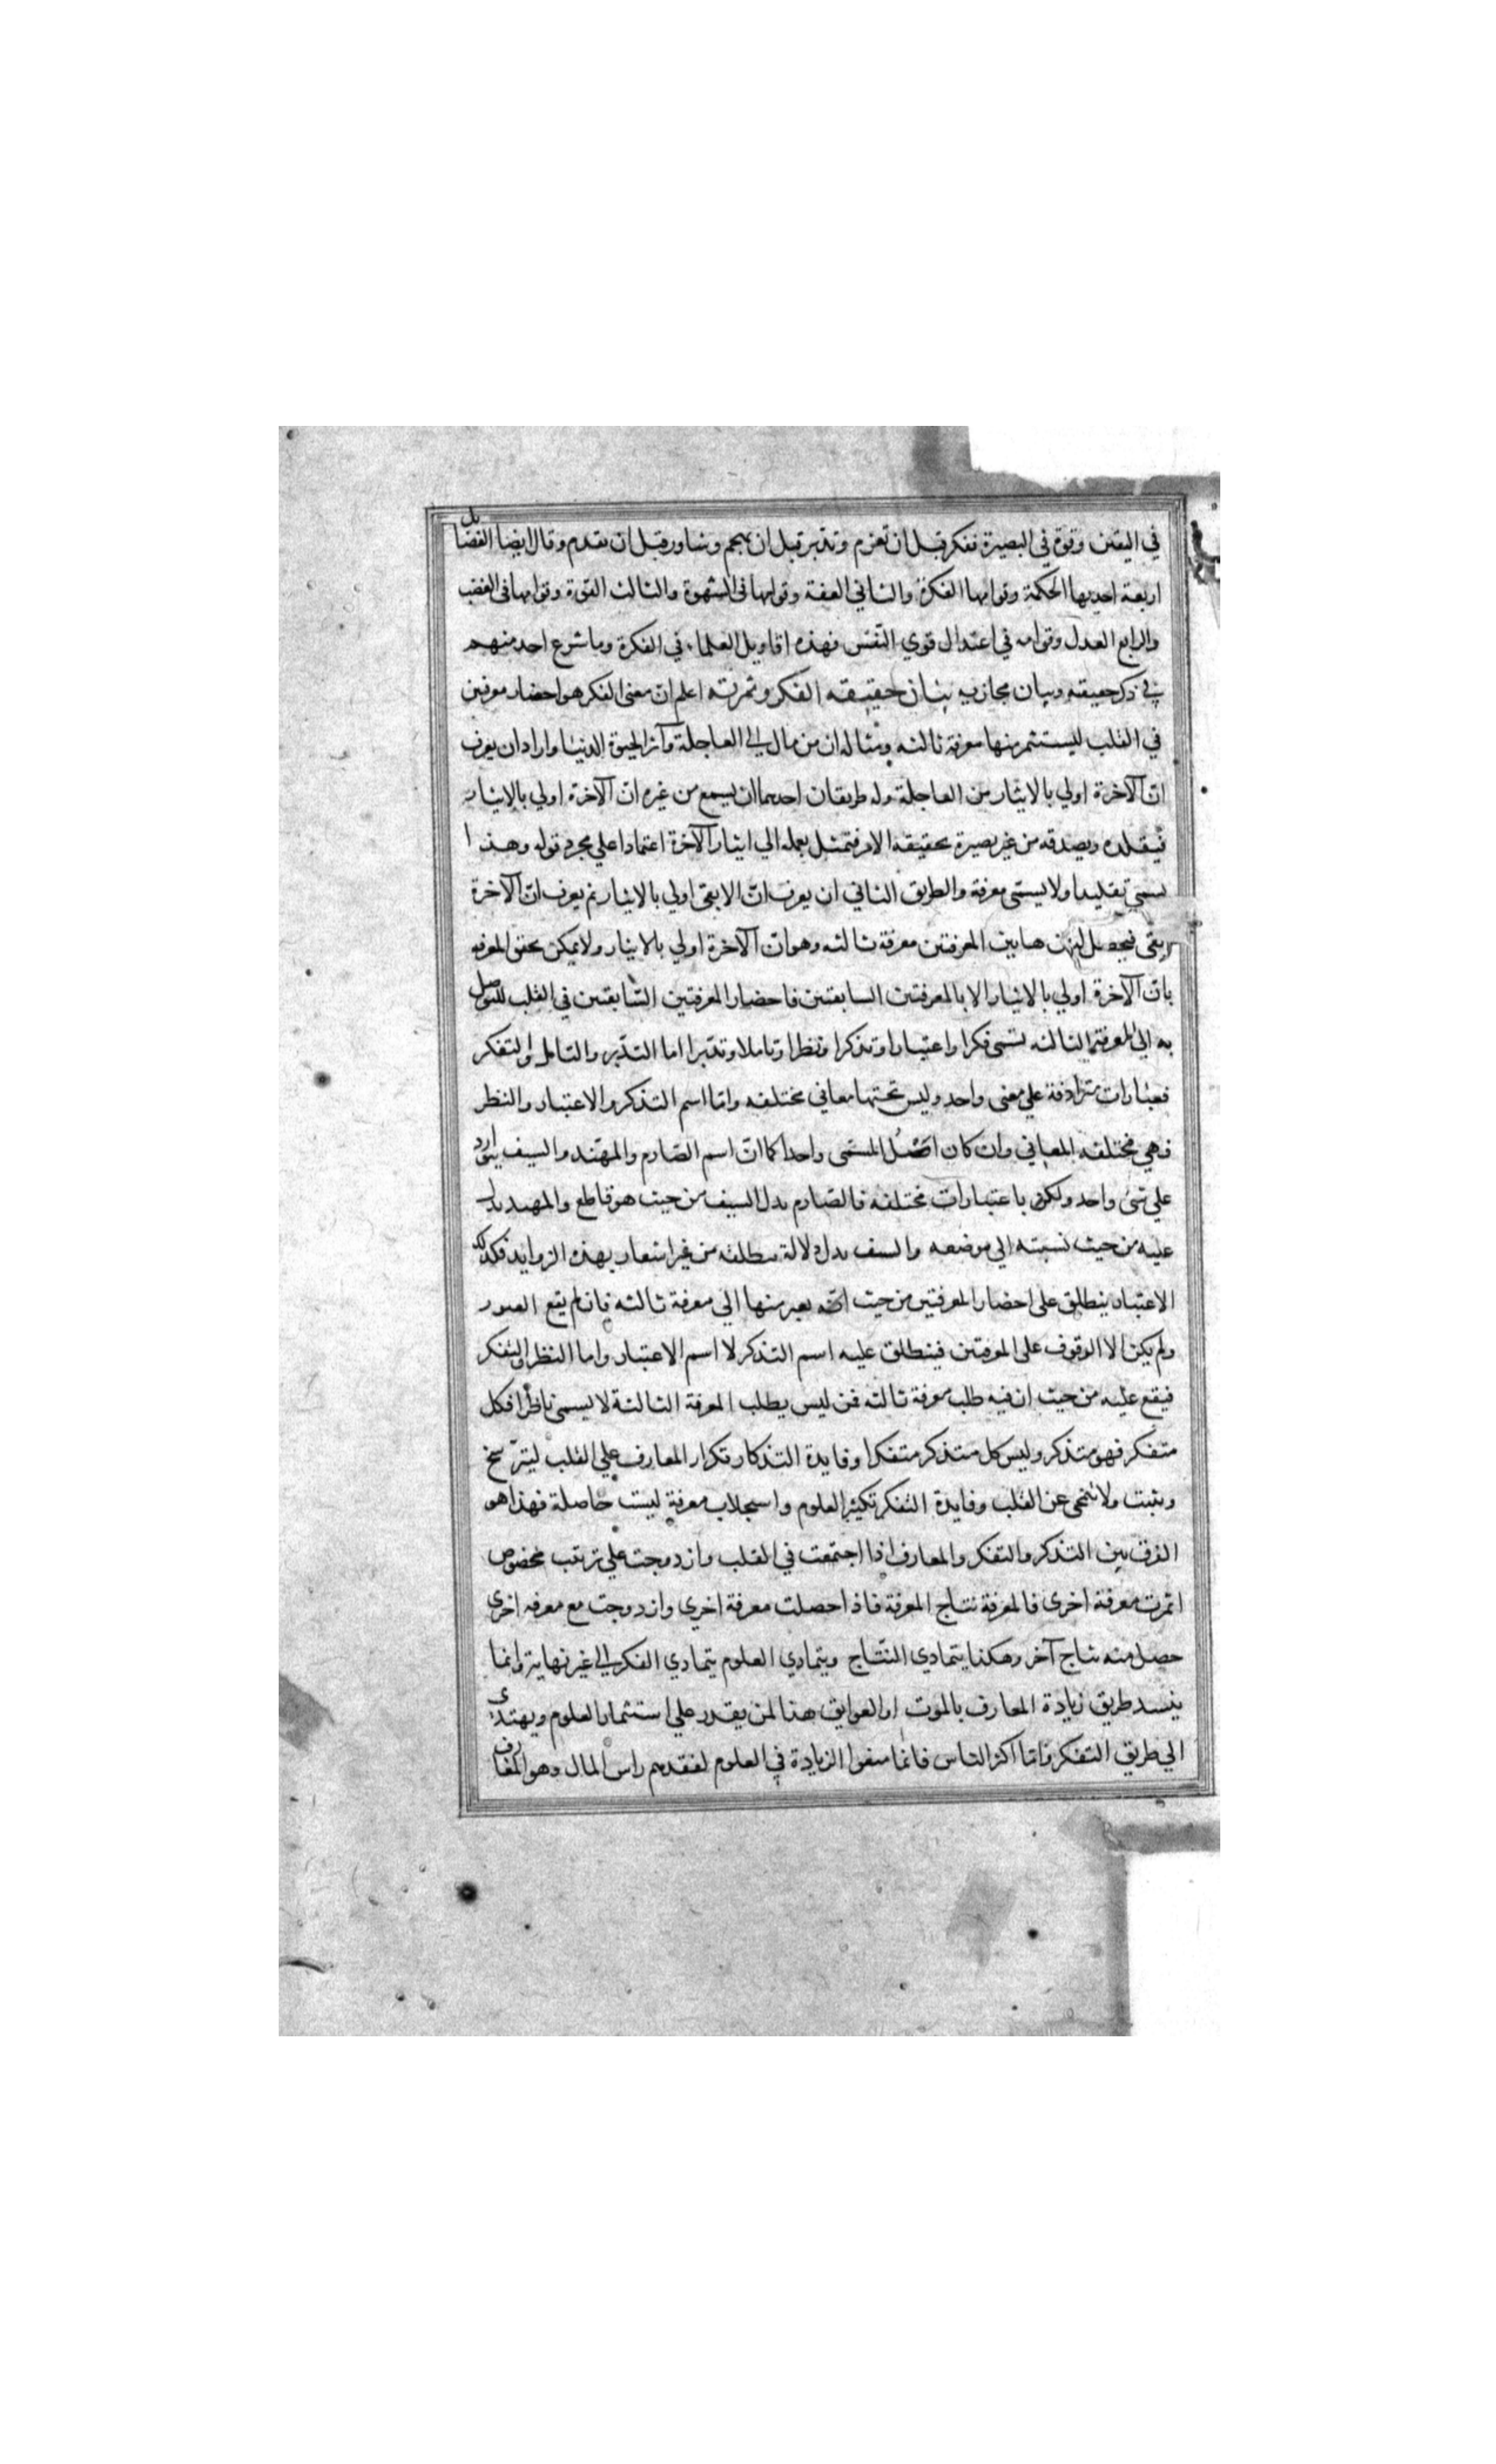 في اليقين وقوة في البصيرة ففكر قبل ان تعزم وتدبر قبل ان تهجم وشاور قبل ان تقدم وقال ايضا الفضايل
اربعة احديها الحكمة وقوامها الفكرة والثاني العفة وقوامها في الشهوة والثالث القوة وقوامها في الغضب
والرابع العدل وقوامه في اعتدال قوي النفس فهذه اقاويل العلماء في الفكرة وما شرع احد منهم
في ذكر حقيقته وبيان مجاريه بيان حقيقه الفكر وثمرته اعلم ان معنى الفكر هو احضار معرفتين
في القلب ليستثمر منها معرفة ثالثه ومثاله ان من مال الى العاجلة وآثر الحيوة الدنيا واراد ان يعرف
ان الآخرة اولي بالايثار من العاجلة وله طريقان احدهما ان يسمع من غيره ان الآخرة اولي بالايثار
فيقلده ويصدقه من غير بصيرة بحقيقة الامر فتمثل بعمله الي ايثار الآخرة اعتمادا علي مجرد قوله وهذا
يسمي تقليدا ولا يسمى معرفة والطريق الثاني ان يعرف ان الابقى اولي بالايثار ثم يعرف ان الآخرة
ابقى فيحصل له من هاتين المعرفتين معرفة ثالثه وهو ان الآخرة اولي بالايثار ولا يمكن تحقق المعرفه
بان الآخرة اولي بالايثار الا بالمعرفتين السابقتين فاحضار المعرفتين السابقتين في القلب للتوصل
به الى المعرفة الثالثه تسمى فكرا واعتبارا وتذكرا ونظرا وتاملا وتدبرا اما التدبر والتامل والتفكر
فعبارات مترادفة علي معنى واحد وليس تحتها معاني مختلفه واما اسم التذكر والاعتبار والنظر
فهي مختلفه المعاني وان كان اصل المسمى واحدا كما ان اسم الصارم والمهند والسيف يتوارد
علي شئ واحد ولكن باعتبارات مختلفه فالصارم يدل السيف من حيث هو قاطع والمهند يدل
عليه من حيث نسبته الي موضعه والسيف يدل دلالة مطلقه من غير اشعار بهذه الزوايد فكذلك
الاعتبار ينطلق على احضار المعرفتين من حيث انه يعبر منها الي معرفة ثالثه فان لم يقع العبور
ولم يكن الا الوقوف على المعرفتين فينطلق عليه اسم التذكر لا اسم الاعتبار واما النظر والتفكر
فيقع عليه من حيث ان فيه طلب معرفة ثالثه فمن ليس يطلب المعرفة الثالثة لا يسمى ناظرا فكل
متفكر فهو متذكر وليس كل متذكر متفكرا وفايدة التذكار تكرار المعارف علي القلب ليترسخ
ويثبت ولا تنمحي عن القلب وفايدة التفكر تكثير العلوم واستجلاب معرفة ليست حاصلة فهذا هو
الفرق بين التذكر والتفكر والمعارف اذا اجتمعت في القلب وازدوجت علي ترتيب مخصوص
اثمرت معرفة اخرى فالمعرفة نتاج المعرفة فاذا حصلت معرفة اخري وازدوجت مع معرفه اخري
حصل منه نتاج آخر وهكذا يتمادي النتاج ويتمادي العلوم يتمادي الفكر الى غير نهاية وانما
ينسد طريق زيادة المعارف بالموت او العوايق هذا لمن يقدر علي استثمار العلوم ويهتدي
الي طريق التفكر واما اكثر الناس فانما منعوا الزيادة في العلوم لفقدهم راس المال وهو المعارف